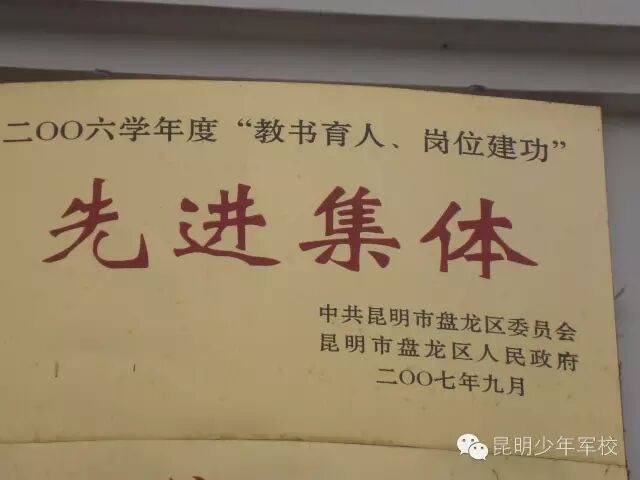 二〇〇六学年度“教书育人、岗位建功”
先进集体
中共昆明市盘龙区委员会
昆明市盘龙区人民政府
二〇〇七年九月
昆明少年军校